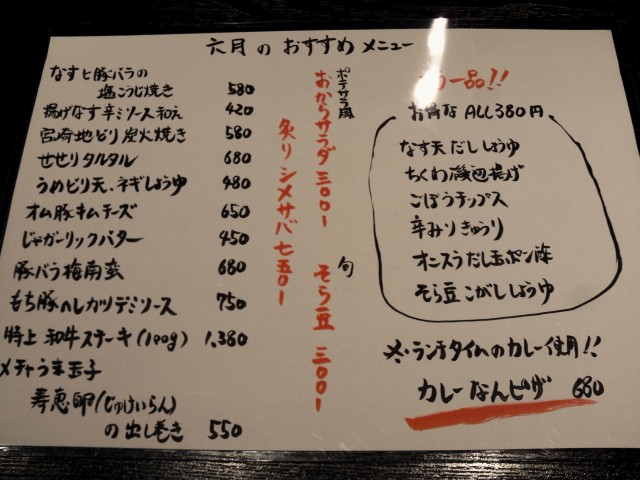 六月のおすすめメニュー
なすと豚バラの
塩こうじ焼き 580
揚げなす辛ミソース和え 420
宮崎地どり炭火焼き 580
せせりタルタル 680
うめどり天、ネギしょうゆ 480
オム豚キムチーズ 650
じゃガーリックバター 450
豚バラ梅南蛮 680
もち豚ヘレカツデミソース 750
特上和牛ステーキ(100g) 1,380
メチャうま玉子
寿恵卵(じゅけいらん)
の出し巻き 550
ポテサラ風
おからサラダ 三〇〇ー
炙りシメサバ 七五〇ー
旬
そら豆 三〇〇ー
一品!!
お得な ALL380円
なす天だししょうゆ
ちくわ磯辺揚げ
ごぼうチップス
辛みりきゅうり
オニスラだし玉ポン酢
そら豆こがししょうゆ
ランチタイムのカレー使用!!
カレーなんピザ 680